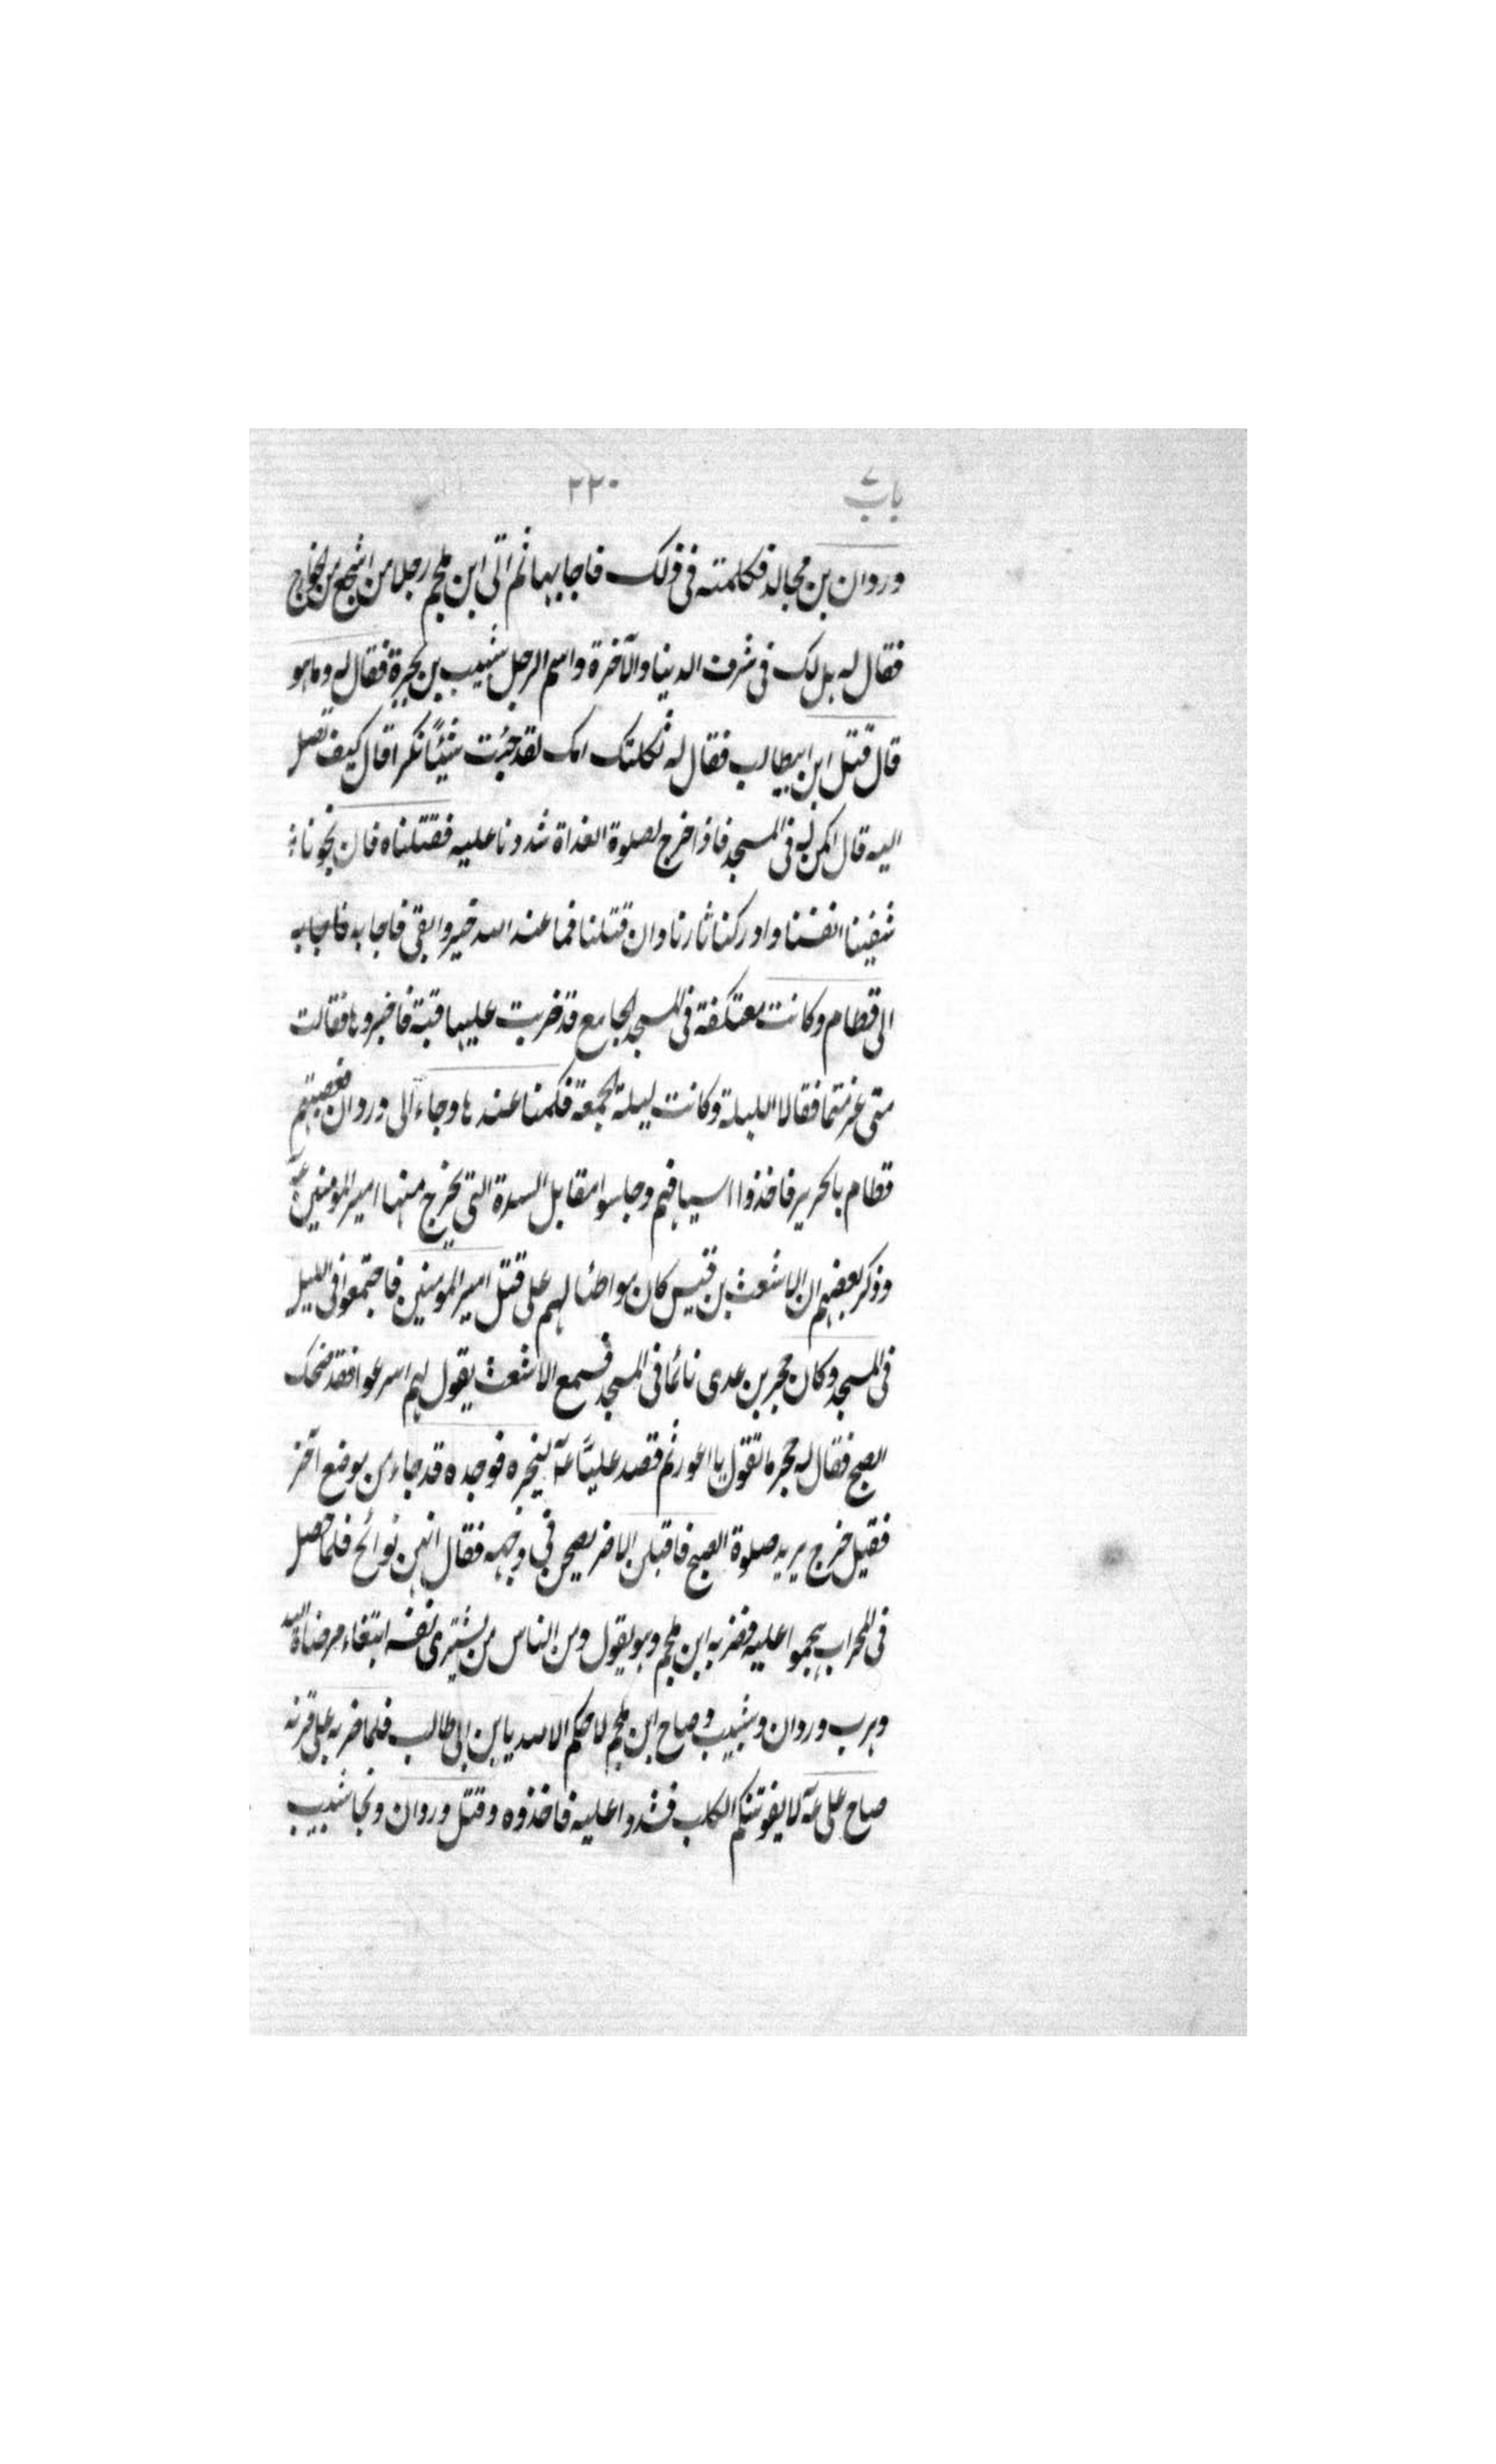 باب ٢٢٠
وردان بن مجالد فكلمته فى ذلك فاجابها ثم اتى ابن ملجم رجلا من اشجع من الخوارج
فقال له هل لك فى شرف الدينا والآخرة واسم الرجل شبيب بن بجرة فقال له وما هو
قال قتل ابن ابيطالب فقال له ثكلتك امك لقد جئت شيئًا نكرا قال كيف تصل
اليه قال اكمن له فى المسجد فاذا خرج لصلوة الغداة شددنا عليه فقتلناه فان نجونا
شفينا انفسنا وادركنا ثارنا وان قتلنا فما عند الله خير وابقى فاجابه فاجابه
الى قطام وكانت معتكفة فى المسجد الجامع قد ضربت عليها قبة فاخبروها فقالت
متى عزمتما فقالا الليلة وكانت ليلة الجمعة فكمنا عندها وجاء الى وردان فعصبتهم
قطام بالحرير فاخذوا اسيافهم وجلسوا مقابل السدة التى يخرج منها امير المومنين عه
وذكر بعضهم ان الاشعث بن قيس كان مواطئا لهم على قتل امير المومنين فاجتمعوا فى الليل
فى المسجد وكان حجر بن عدى نائما فى المسجد فسمع الاشعث يقول لهم اسرعوا فقد ضحك
الصبح فقال له حجر ما تقول يا اعور ثم قصد عليّا عه ليخبره فوجده قد جاء من موضع آخر
فقيل خرج يريد صلوة الصبح فاقبلن الاوز يصحن فى وجهه فقال انهن نوائح فلما حصل
فى المحراب هجموا عليه فضربه ابن ملجم وهو يقول ومن الناس من يشترى نفسه ابتغاء مرضاة الله
وهرب وردان وشبيب وصاح ابن ملجم لا حكم الا لله يا بن ابى طالب فلما ضربه على قرنه
صاح على عه لا يفوتنكم الكلب فشدوا عليه فاخذوه وقتل وردان ونجا شبيب